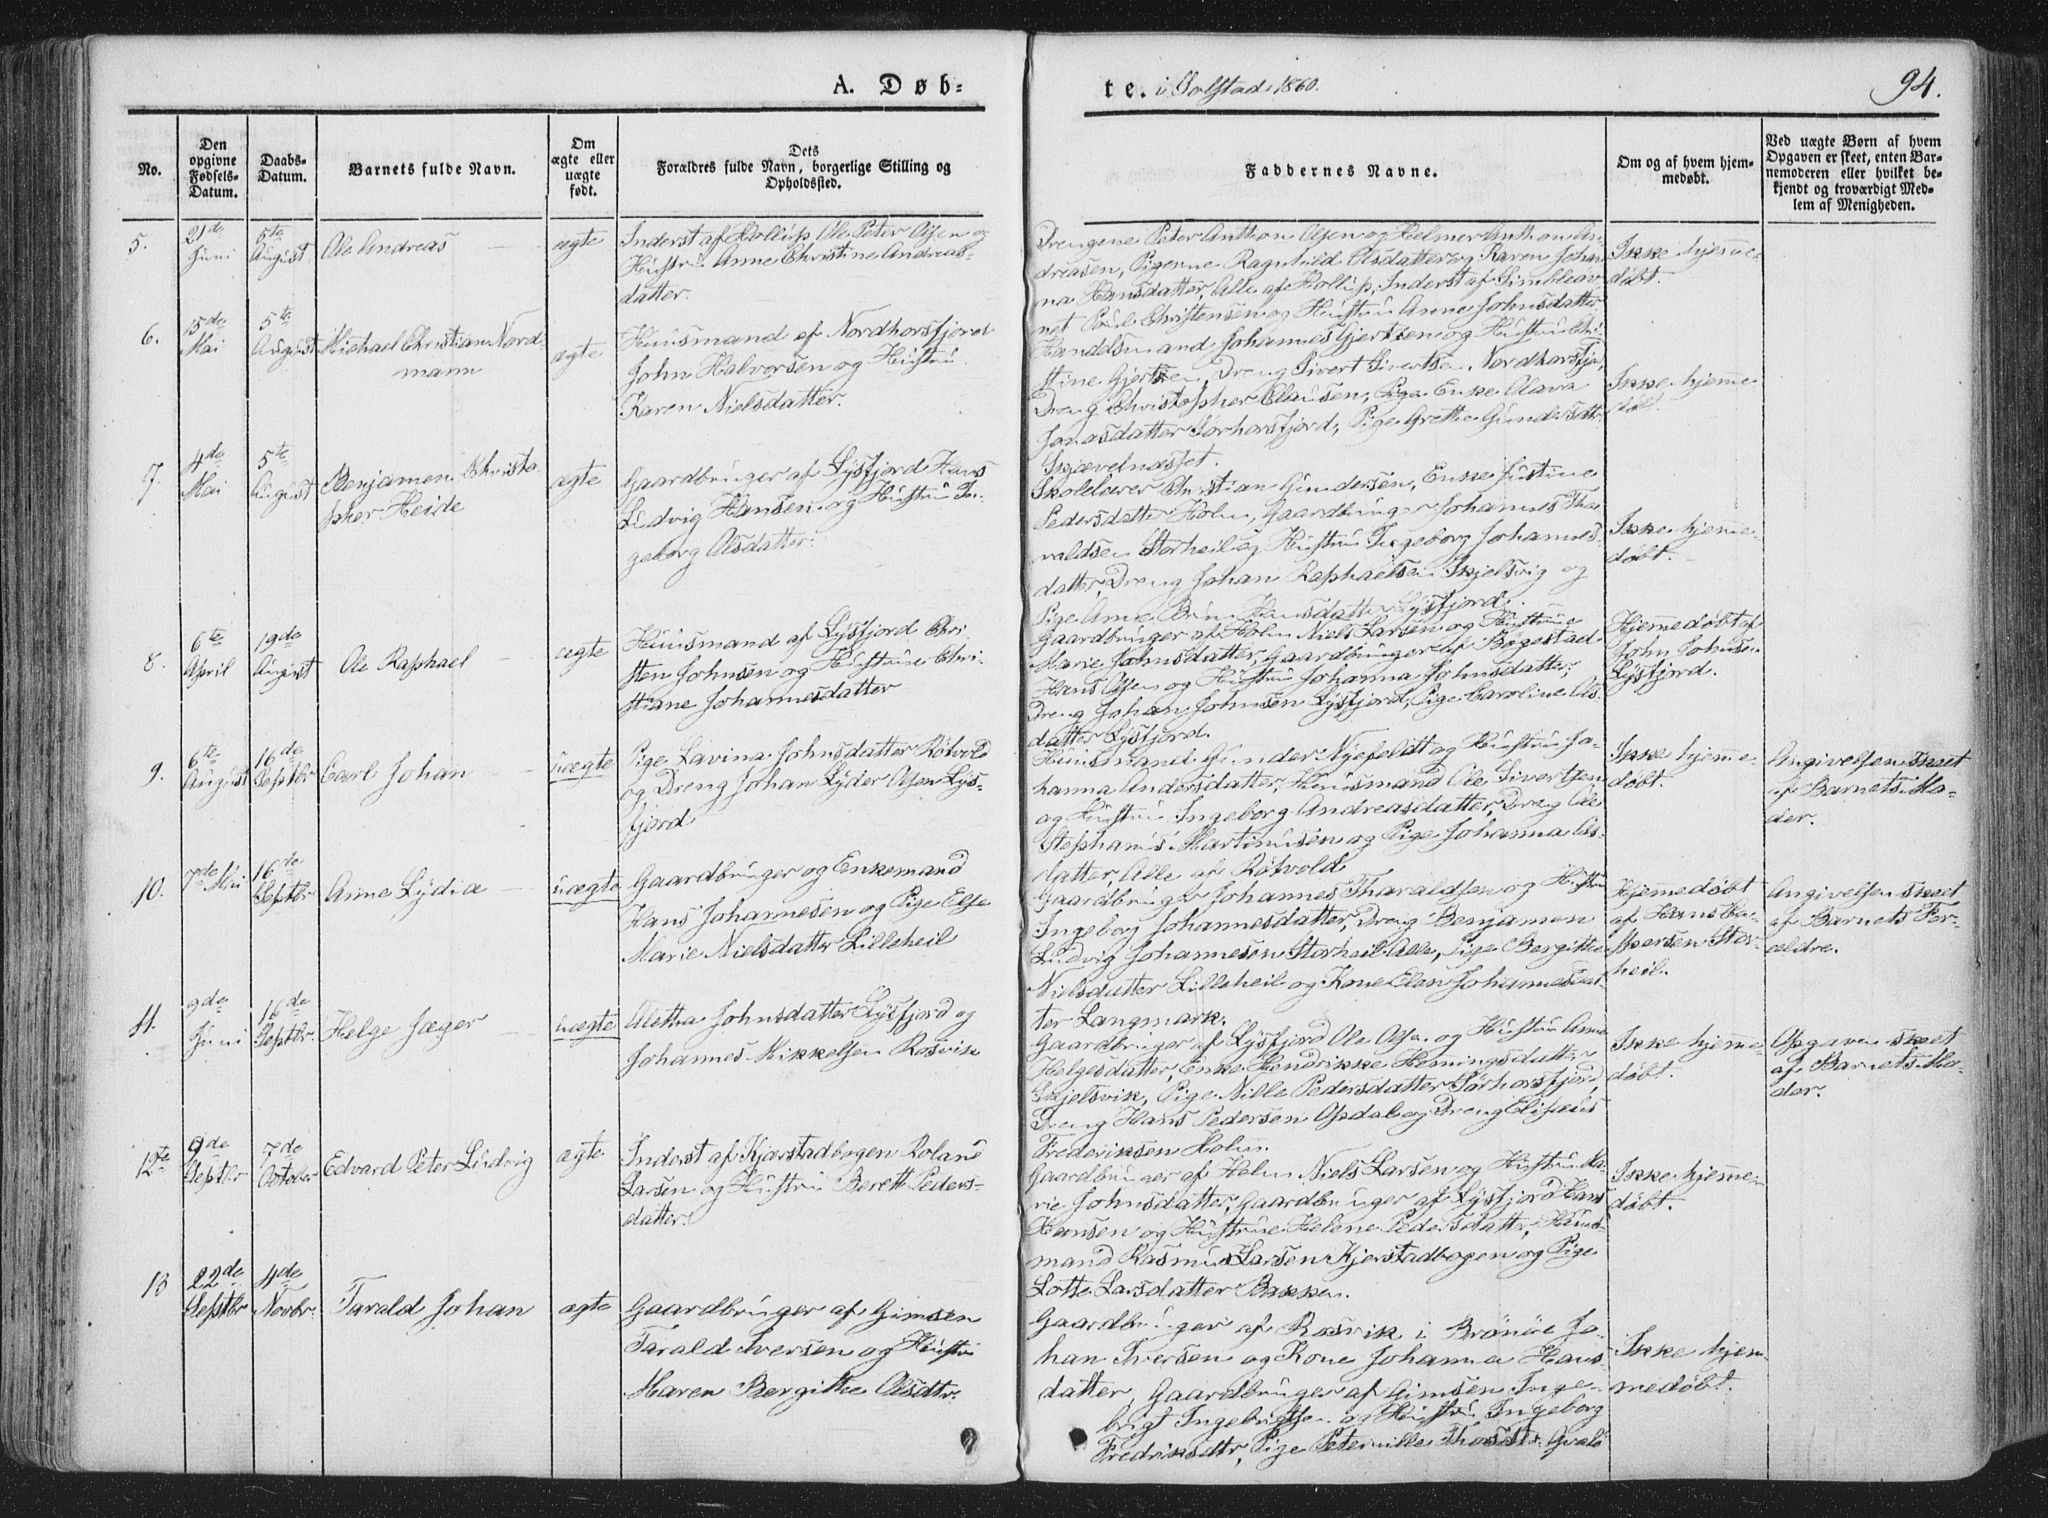 A. Døb-
te. i Solstad 1860.
94.
No.
Den opgivne Fødsels-Datum.
Daabs-Datum.
Barnets fulde Navn.
Om ægte eller uægte født.
Dets Forældres fulde Navn, borgerlige Stilling og Opholdssted.
Faddernes Navne.
Om og af hvem hjemmedøbt.
Ved uægte Børn af hvem Opgaven er skeet, enten Barnemoderen eller hvilket bekjendt og troværdigt Medlem af Menigheden.
5.
21de Juni
5te August
Ole Andreas
ægte
Inderst af Hollup Ole Peter Olsen og
Hustru Anne Christine Andreas-
datter.
Drengene Peter Anthon Olsen og Helmer Anthon An-
dreasen, Pigerne Ragnhild Olsdatter og Karen Johan-
na Hansdatter, Alle af Hollup, Inderst af
net Poul Christensen og Hustru Anne Johnsdatter
Ikke hjemme-
døbt.
6.
15de Mai
5te August
Michael Christian Nord-
mann
ægte
Huusmand af Nordhorsfjord
John Halvorsen og Hustru
Karen Nielsdatter.
Johannes Gjertsen og Hustru Chri-
stine Gjertsen, Dreng Sivert Sivertsen Nordhorsfjo.
Dreng Christopher Clausen, Pige Enke Olava
Jonasdatter Sørhorsfjord, Pige Grethe Gundersdtr.
Skjævelnæsset.
Ikke hjemme
døbt.
7.
4de Mai
5te August
Benjamen Christo-
pher Heide
ægte
Gaardbruger af Lysfjord Hans
Ludvig Hansen og Hustru In-
geborg Olsdatter.
Skolelærer Christian Gundersen, Enke Justine
Pedersdatter Holm, Gaardbruger Johannes Tha-
raldsen Storheil og Hustru Ingeborg Johannes-
datter, Dreng Johan Raphaelsen Skjelsvig og
Pige Ane Hansdatter Lysfjord.
Ikke hjemme-
døbt.
8.
6te April
19de August
Ole Raphael
ægte
Huusmand af Lysfjord Chri-
sten Johnsen og Hustrue Chri-
stiane Johannesdatter
Gaardbruger af Holm Niels Larsen og Hustrue
Marie Johnsdatter, Gaardbruger af Bøgestad
Hans Olsen og Hustru Johanna Johnsdatter,
Dreng Johan Johnsen Lysfjord, Pige Caroline Ols-
datter Lysfjord.
Hjemmedøbt af
John Johnsen
Lysfjord.
9.
6te August
16de Septbr
Carl Johan
uægte
Pige Lavina Johnsdatter Røtvold
og Dreng Johan Lyder Olsen Lys-
fjord
Huusmand Gunder Nyefeldt og Hustru Jo-
hanna Andersdatter, Huusmand Ole Sivertsen
og Hustru Ingeborg Andreasdatter, Dreng Ole
Stephanus Martinusen og Pige Johanna Ols-
datter Alle af Røtvold
Ikke hjemme-
døbt.
Angivelsen skeet
af Barnets Mo-
der.
10.
7de
16de Septbr
Anne Lydia
uægte
Gaardbruger og Enkemand
Hans Johannesen og Pige Else
Marie Nielsdatter Lilleheil
Gaardbruger Johannes Tharaldsen og Hustru
Ingeborg Johannesdatter, Dreng Benjamen
Ludvig Johannesen Storheil Alle, Pige Bergitte
Nielsdatter Lilleheil og Kone Elen Johannesdat-
ter Langmark.
Hjemmedøbt
af Hans
Storheil.
Angivelsen skeet
af Barnets For-
ældre.
11.
9de Juni
16de Septbr.
Helge Jæger
uægte
Aletha Johnsdatter Lysfjord og
Johannes Mikkelsen Rosvik
Gaardbruger af Lysfjord Ole Olsen og Hustru Anne
Helgesdatter, Enke Hendrikke Hemingsdatter
Skjelsvik, Pige Nille Pedersdatter Sørhorsfjord,
Dreng Hans Pedersen Opdal og Dreng Elisæus
Frederiksen Holm.
Ikke hjemme-
døbt.
Opgaven skeet
af Barnets Mo-
der.
12te
9de Septbr
7de October
Edvard Peter Ludvig
ægte
Inderst af Kjærstadbogen Roland
Larsen og Hustru Berett Peders-
datter.
Gaardbruger af Holm Niels Larsen og Hustru Ma-
rie Johnsdatter, Gaardbruger af Lysfjord Hans
Hansen og Hustrue Helene Pedersdatter, Huus-
mand Rasmus Larsen Kjerstadbogen og Pige
Lotte Larsdatter Bakken.
Ikke hjemme-
døbt.
13
22de Septbr
4de Novbr.
Tarald Johan
ægte
Gaardbruger af Gimsen
Tarald Iversen og Hustru
Maren Bergithe Olsdtr.
Gaardbruger af Rosvik i Brønøe Jo-
han Iversen og Kone Johanna Hans-
datter, Gaardbruger af Gimsen Inge-
brigt Ingebrigtsen og Hustru Ingeborg
Fredriksdtr, Pige
Ikke hjem-
medøbt.